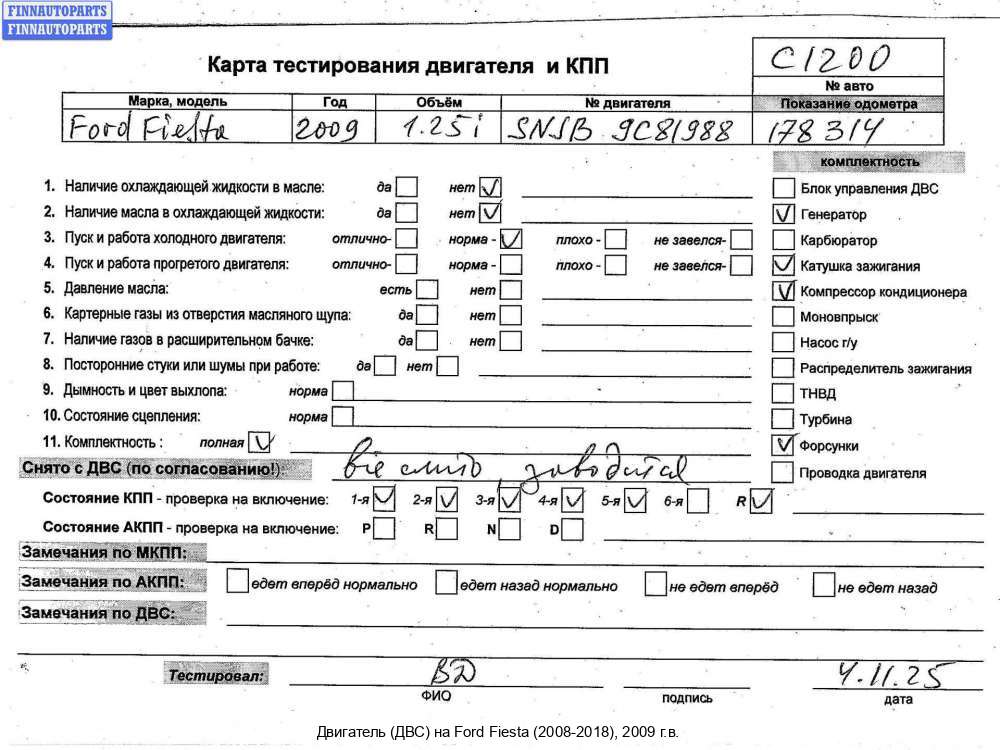 FINNAUTOPARTS
FINNAUTOPARTS
C1200
Карта тестирования двигателя и КПП
№ авто
Марка, модель Год Объём № двигателя Показание одометра
Ford Fiesta 2009 1.25i SNSB 9C81988 178314
комплектность
1. Наличие охлаждающей жидкости в масле: да нет Блок управления ДВС
2. Наличие масла в охлаждающей жидкости: да нет Генератор
3. Пуск и работа холодного двигателя: отлично- норма - плохо - не завелся- Карбюратор
4. Пуск и работа прогретого двигателя: отлично- норма - плохо - не завелся- Катушка зажигания
5. Давление масла: есть нет Компрессор кондиционера
6. Картерные газы из отверстия масляного щупа: да нет Моновпрыск
7. Наличие газов в расширительном бачке: да нет Насос г/у
8. Посторонние стуки или шумы при работе: да нет Распределитель зажигания
9. Дымность и цвет выхлопа: норма ТНВД
10. Состояние сцепления: норма Турбина
11. Комплектность : полная Форсунки
Снято с ДВС (по согласованию!): заводится Проводка двигателя
Состояние КПП - проверка на включение: 1-я 2-я 3-я 4-я 5-я 6-я R
Состояние АКПП - проверка на включение: P R N D
Замечания по МКПП:
Замечания по АКПП: едет вперёд нормально едет назад нормально не едет вперёд не едет назад
Замечания по ДВС:
Тестировал: ВД 4.11.25
ФИО подпись дата
Двигатель (ДВС) на Ford Fiesta (2008-2018), 2009 г.в.